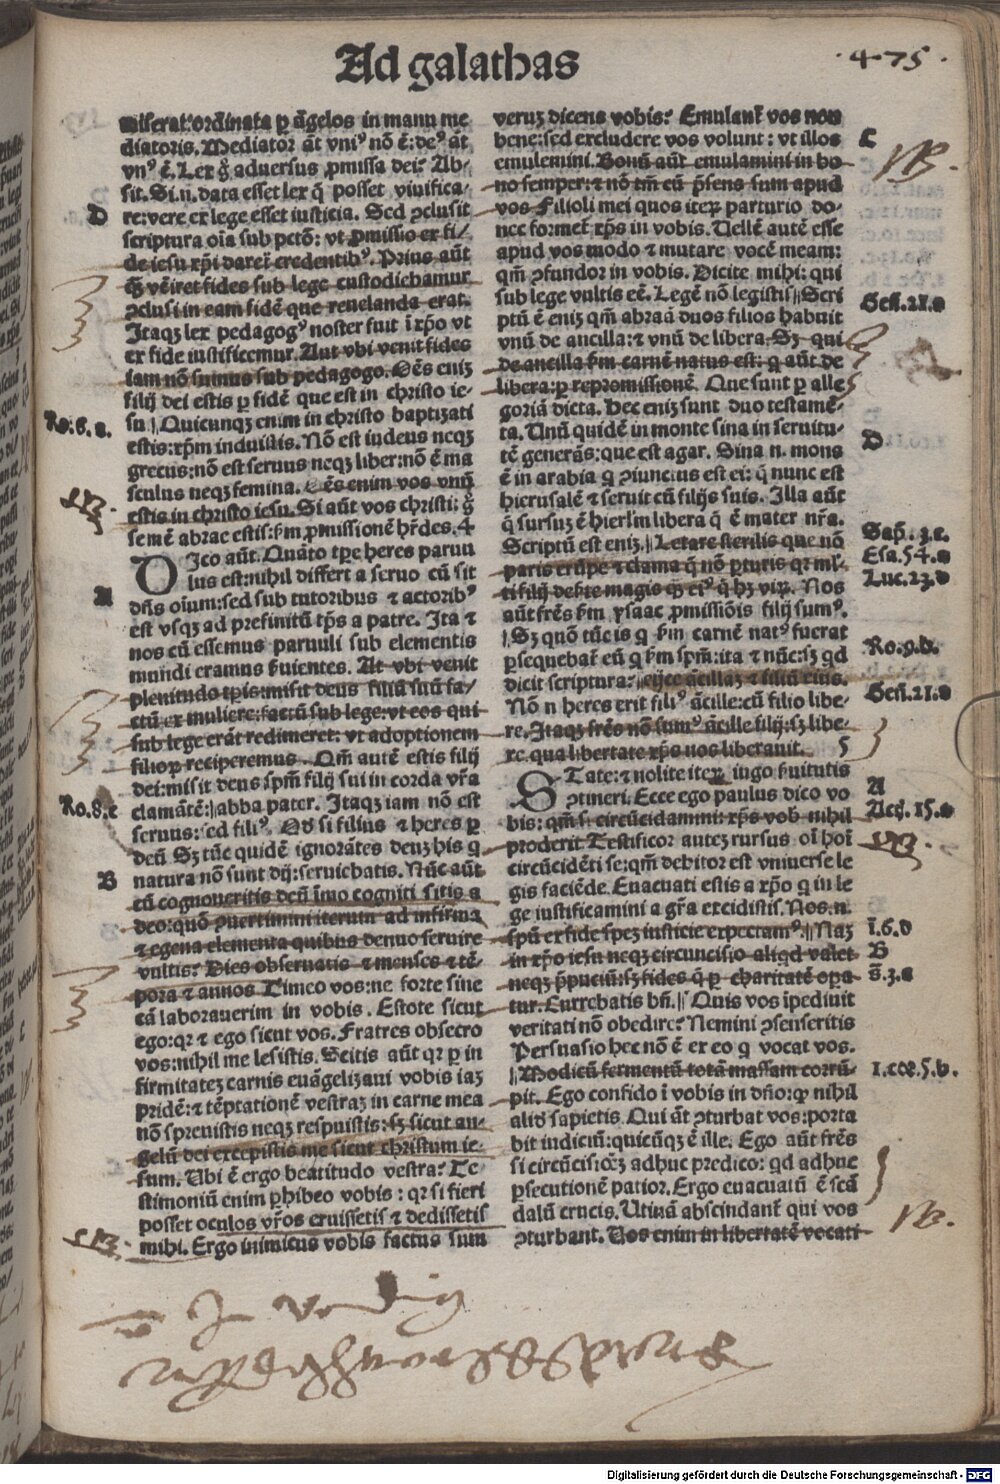 Ad galathas
·475·
miserat: ordinata ꝑ āgelos in manu me
diatoris. Mediator āt vniꝰ nō ē: deꝰ āt
vnꝰ ē. Lex ḡ aduersus ꝓmissa dei? Ab-
sit. Si .n. data esset lex q̄ posset viuifica-
re: vere ex lege esset iusticia. Sed ꝯclusit
scriptura oīa sub pctō: vt ꝓmissio ex fi/
de iesu xp̄i daret̄ credentibꝰ. Prius aūt
q̄ꝫ vēiret fides sub lege custodiebamur
ꝯclusi in eam fidē que reuelanda erat.
Itaqꝫ lex pedagogꝰ noster fuit ī xp̄o vt
ex fide iustificemur. Aut vbi venit fides
iam nō sumus sub pedagogo. Oēs eniꝫ
filij dei estis ꝑ fidē que est in christo ie-
su. Quicunqꝫ enim in christo baptizati
estis: xp̄m induistis. Nō est iudeus neqꝫ
grecus: nō est seruus neqꝫ liber: nō ē ma
sculus neqꝫ femina. Oēs enim vos vnū
estis in christo iesu. Si aūt vos christi: ḡ
semē abrae estis: ẜm ꝓmissionē hr̄des. 4
DIco aūt. Quāto tp̄e heres paruu
lus est: nihil differt a seruo cū sit
dn̄s oīum: sed sub tutoribus ⁊ actoribꝰ
est vsqꝫ ad prefinitū tp̄s a patre. Ita ⁊
nos cū essemus paruuli sub elementis
mundi eramus ẜuientes. At vbi venit
plenitudo tp̄is: misit deus filiū suū fa/
ctū ex muliere: factū sub lege: vt eos qui
sub lege erāt redimeret: vt adoptionem
filioꝝ reciperemus. Qm̄ autē estis filij
dei: misit deus sp̄m filij sui in corda vr̄a
clamātē: abba pater. Itaqꝫ iam nō est
seruus: sed filiꝰ. Qd̄ si filius ⁊ heres ꝑ
deū Sꝫ tūc quidē ignorātes deuꝫ his q
natura nō sunt dij: seruiebatis. Nūc aūt
cū cognoueritis deū īmo cogniti sitis a
deo: quō ꝯuertimini iterum ad infirma
⁊ egena elementa quibus denuo seruire
vultis? Dies obseruatis ⁊ menses ⁊ tē-
pora ⁊ annos Timeo vos: ne forte sine
cā laborauerim in vobis. Estote sicut
ego: qꝛ ⁊ ego sicut vos. Fratres obsecro
vos: nihil me lesistis. Scitis aūt qꝛ ꝑ in
firmitateꝫ carnis euāgelizaui vobis iaꝫ
pridē: ⁊ tēptationē vestraꝫ in carne mea
nō spreuistis neqꝫ respuistis: sꝫ sicut an-
gelū dei excepistis me sicut christum ie-
sum. Ubi ē ergo beatitudo vestra? Te
stimoniū enim ꝑhibeo vobis: qꝛ si fieri
posset oculos vr̄os eruissetis ⁊ dedissetis
mihi. Ergo inimicus vobis factus sum
D
Ro:6.a.
A
Ro.8.c
B
veruꝫ dicens vobis? Emulant̄ vos non
bene: sed excludere vos volunt: vt illos
emulemini. Bonū aūt emulamini in bo-
no semper: ⁊ nō tm̄ cū p̄sens sum apud
vos Filioli mei quos iteꝝ parturio do-
nec formet̄ xp̄s in vobis. Uellē autē esse
apud vos modo ⁊ mutare vocē meam:
qm̄ ꝯfundor in vobis. Dicite mihi: qui
sub lege vultis eē. Legē nō legistis? Scri
ptū ē eniꝫ qm̄ abraā duos filios habuit
vnū de ancilla: ⁊ vnū de libera. Sꝫ qui
de ancilla ẜm carnē natus est: q aūt de
libera: ꝑ repromissionē. Que sunt ꝑ alle
goriā dicta. Hec eniꝫ sunt duo testamē-
ta. Unū quidē in monte sina in seruitu-
tē generās: que est agar. Sina .n. mons
ē in arabia q ꝯiunctus est ei: q̄ nunc est
hierusalē ⁊ seruit cū filijs suis. Illa aūt
q̄ sursuꝫ ē hierl̄m libera q̄ ē mater nr̄a.
Scriptū est eniꝫ. Letare sterilis que nō
paris erūpe ⁊ clama q̄ nō ꝑturis qꝛ ml̄-
ti filij deẜte magis q̄ꝫ eiꝰ q̄ hꝫ viꝝ. Nos
aūt fr̄es ẜm ysaac ꝓmissiōis filij sumꝰ.
Sꝫ quō tūc is q ẜm carnē natꝰ fuerat
ꝑsequebat̄ eū q ẜm sp̄m: ita ⁊ nūc: sꝫ qd
dicit scriptura? eijce ācillaꝫ ⁊ filiū eius.
Nō .n. heres erit filiꝰ ācille: cū filio libe-
re. Itaqꝫ fr̄es nō sumꝰ ācille filij: sꝫ libe-
re. qua libertate xp̄s nos liberauit. 5
STate: ⁊ nolite iteꝝ iugo ẜuitutis
ꝯtineri. Ecce ego paulus dico vo
bis: qm̄ si circūcidamini: xp̄s vob nihil
proderit Testificor auteꝫ rursus oī hoī
circūcidēti se: qm̄ debitor est vniuerse le
gis faciēde. Euacuati estis a xp̄o q in le
ge iustificamini a gr̄a excidistis. Nos .n.
sp̄u ex fide speꝫ iusticie expectamꝰ. Naꝫ
in xp̄o iesu neqꝫ circuncisio aliqd valet
neqꝫ p̄puciū: sꝫ fides q̄ ꝑ charitatē oꝑa
tur. Currebatis bn̄. Quis vos īpediuit
veritati nō obedire? Nemini ꝯsenseritis
Persuasio hec nō ē ex eo q vocat vos.
Modicū fermentū totā massam corrū-
pit. Ego confido ī vobis in dn̄o: ꝙ nihil
aliđ sapietis. Qui āt ꝯturbat vos: porta
bit iudiciū: quicūqꝫ ē ille. Ego aūt fr̄es
si circūcisiōꝫ adhuc predico: qd adhuc
ꝑsecutionē patior. Ergo euacuatū ē scā
dalū crucis. Utinā abscindant̄ qui vos
ꝯturbant. Uos enim in libertatē vocati
C
NB.
Geñ.21.a
D
Sap̄.3.c.
Esa.54.a
Luc.23.d
Ro.9.b.
Geñ.21.a
A
Act̄.15.a
ī.6.d
B
s̄.3.a
1.coꝛ.5.b.
NB.
Digitalisierung gefördert durch die Deutsche Forschungsgemeinschaft - DFG